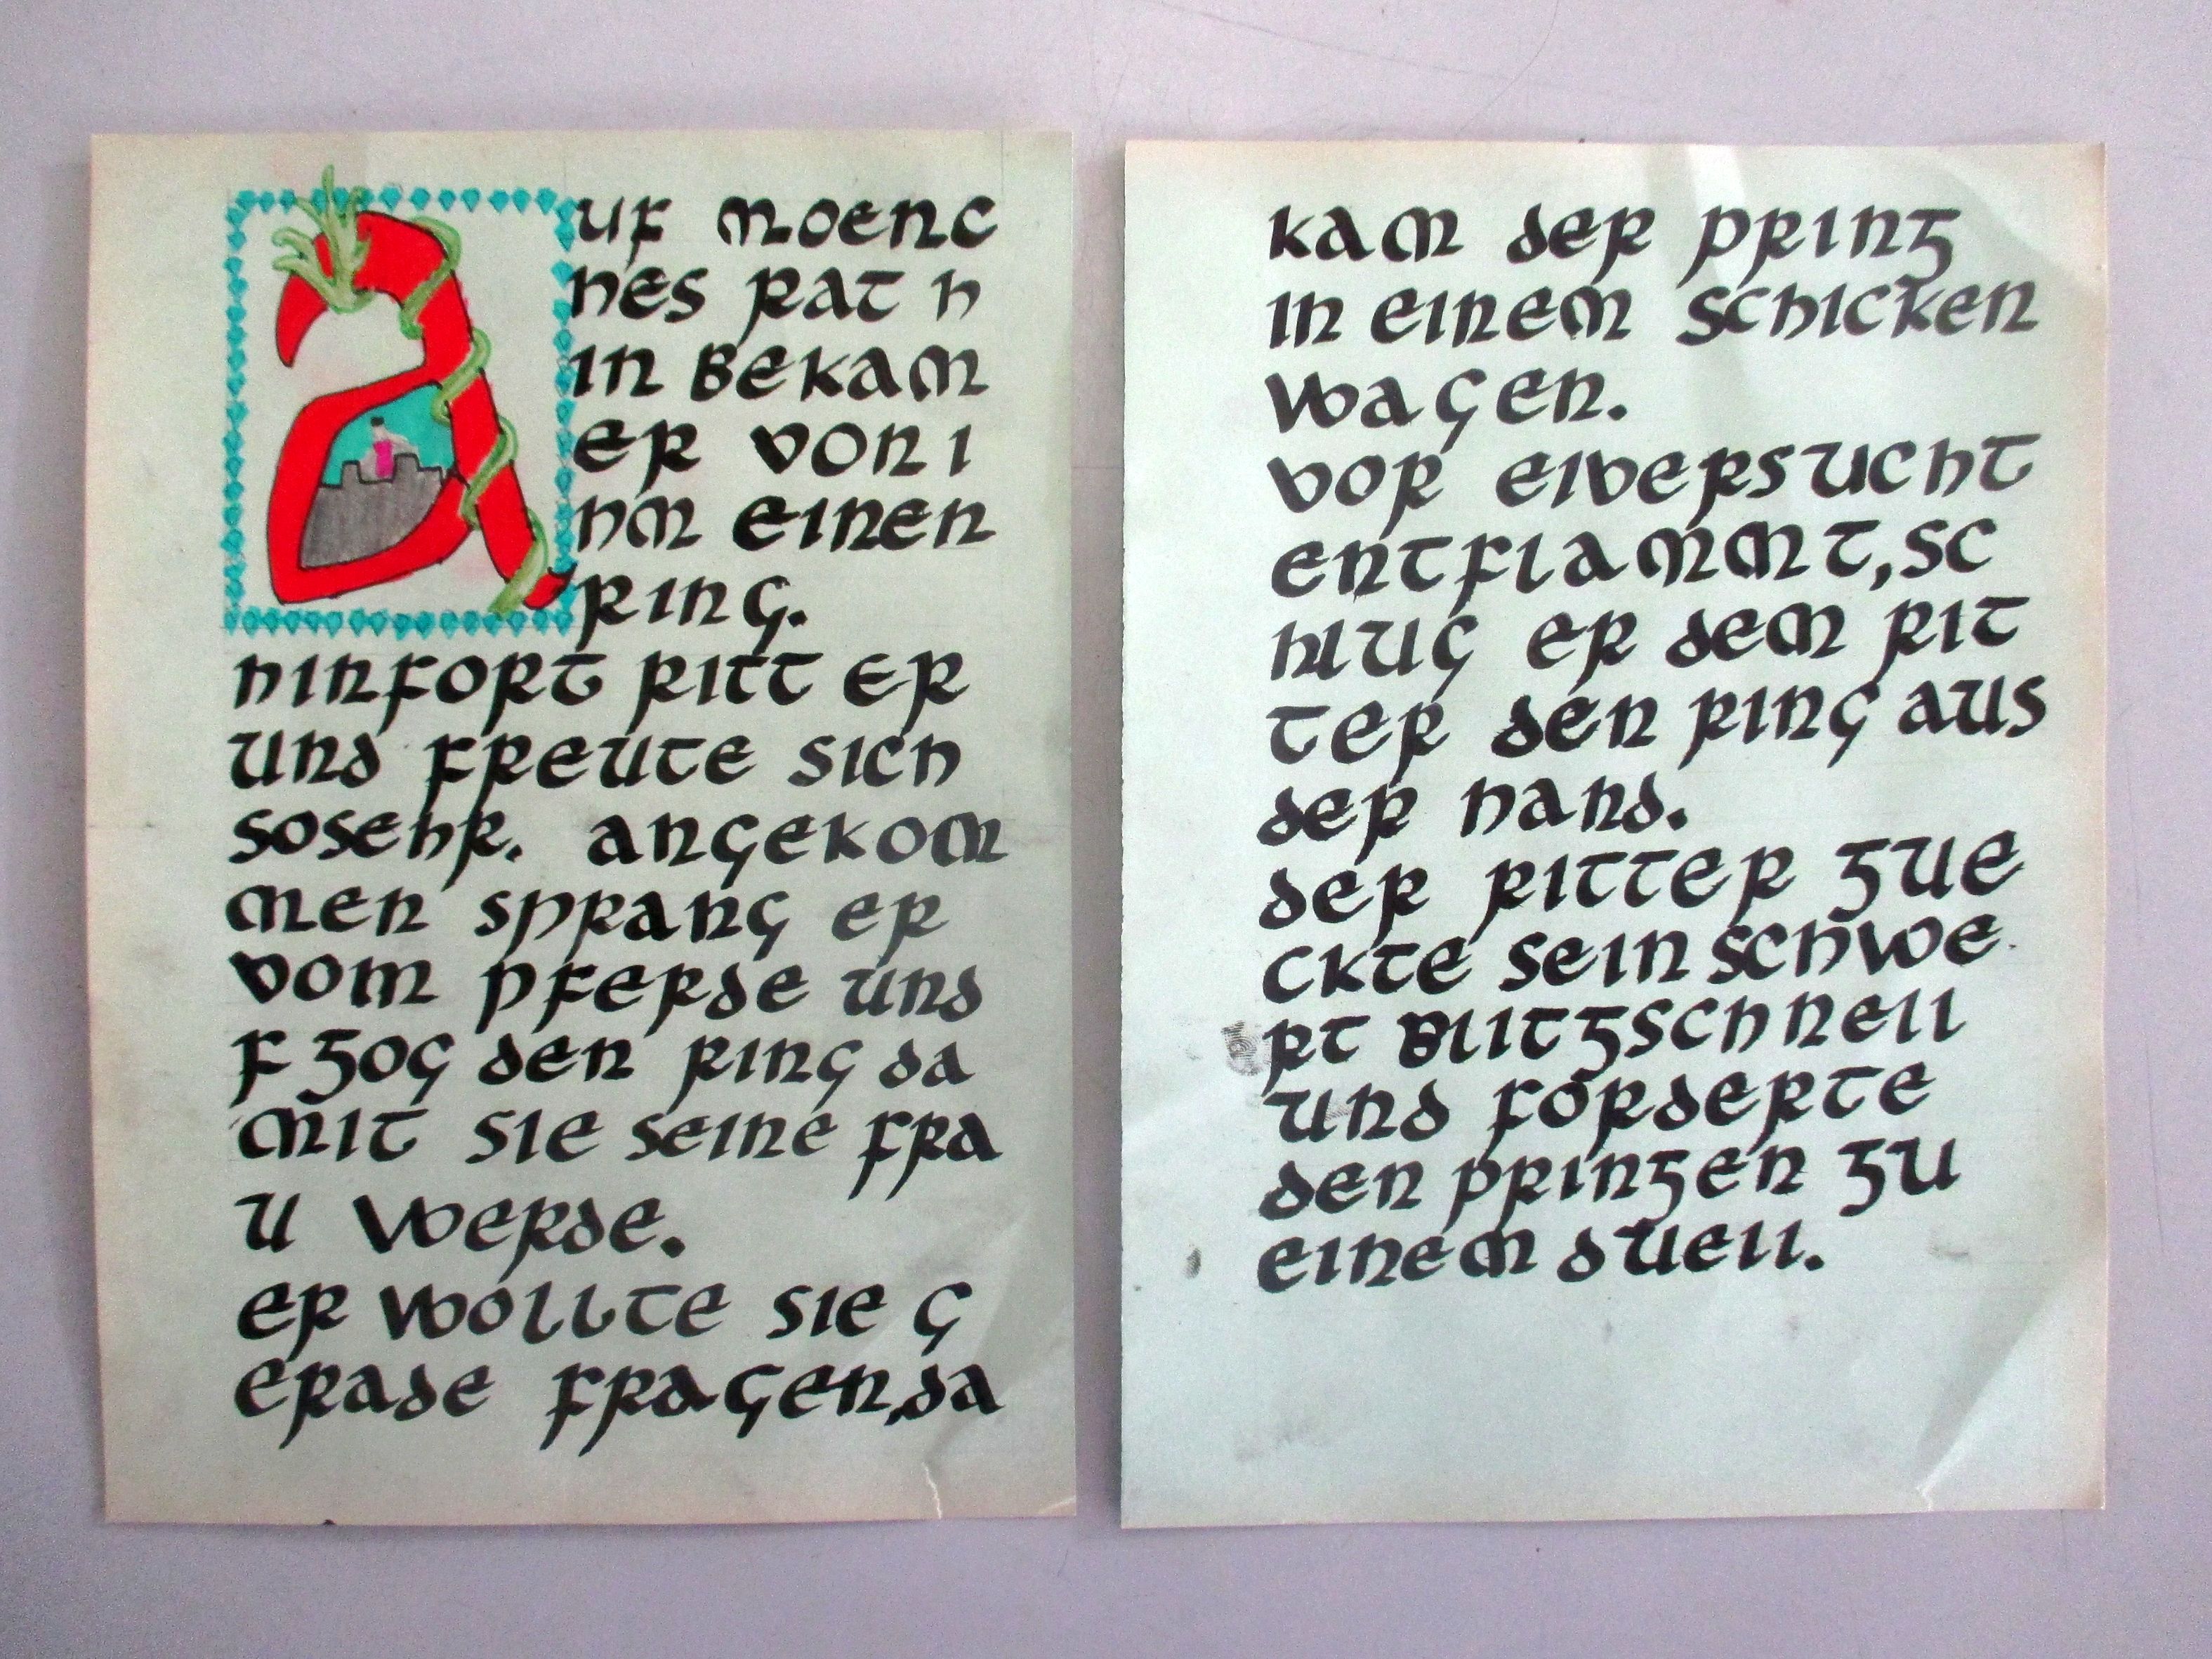 auf moenc
hes rat h
in bekam
er von i
hm einen
ring.
hinfort ritt er
und freute sich
sosehr. angekom
men sprang er
vom pferde und
f zog den ring da
mit sie seine fra
u werde.
er wollte sie g
erade fragen,da
kam der prinz
in einem schicken
wagen.
vor eiversucht
entflammt,sc
hlug er dem rit
ter den ring aus
der hand.
der ritter zue
ckte sein schwe
rt blitzschnell
und forderte
den prinzen zu
einem duell.